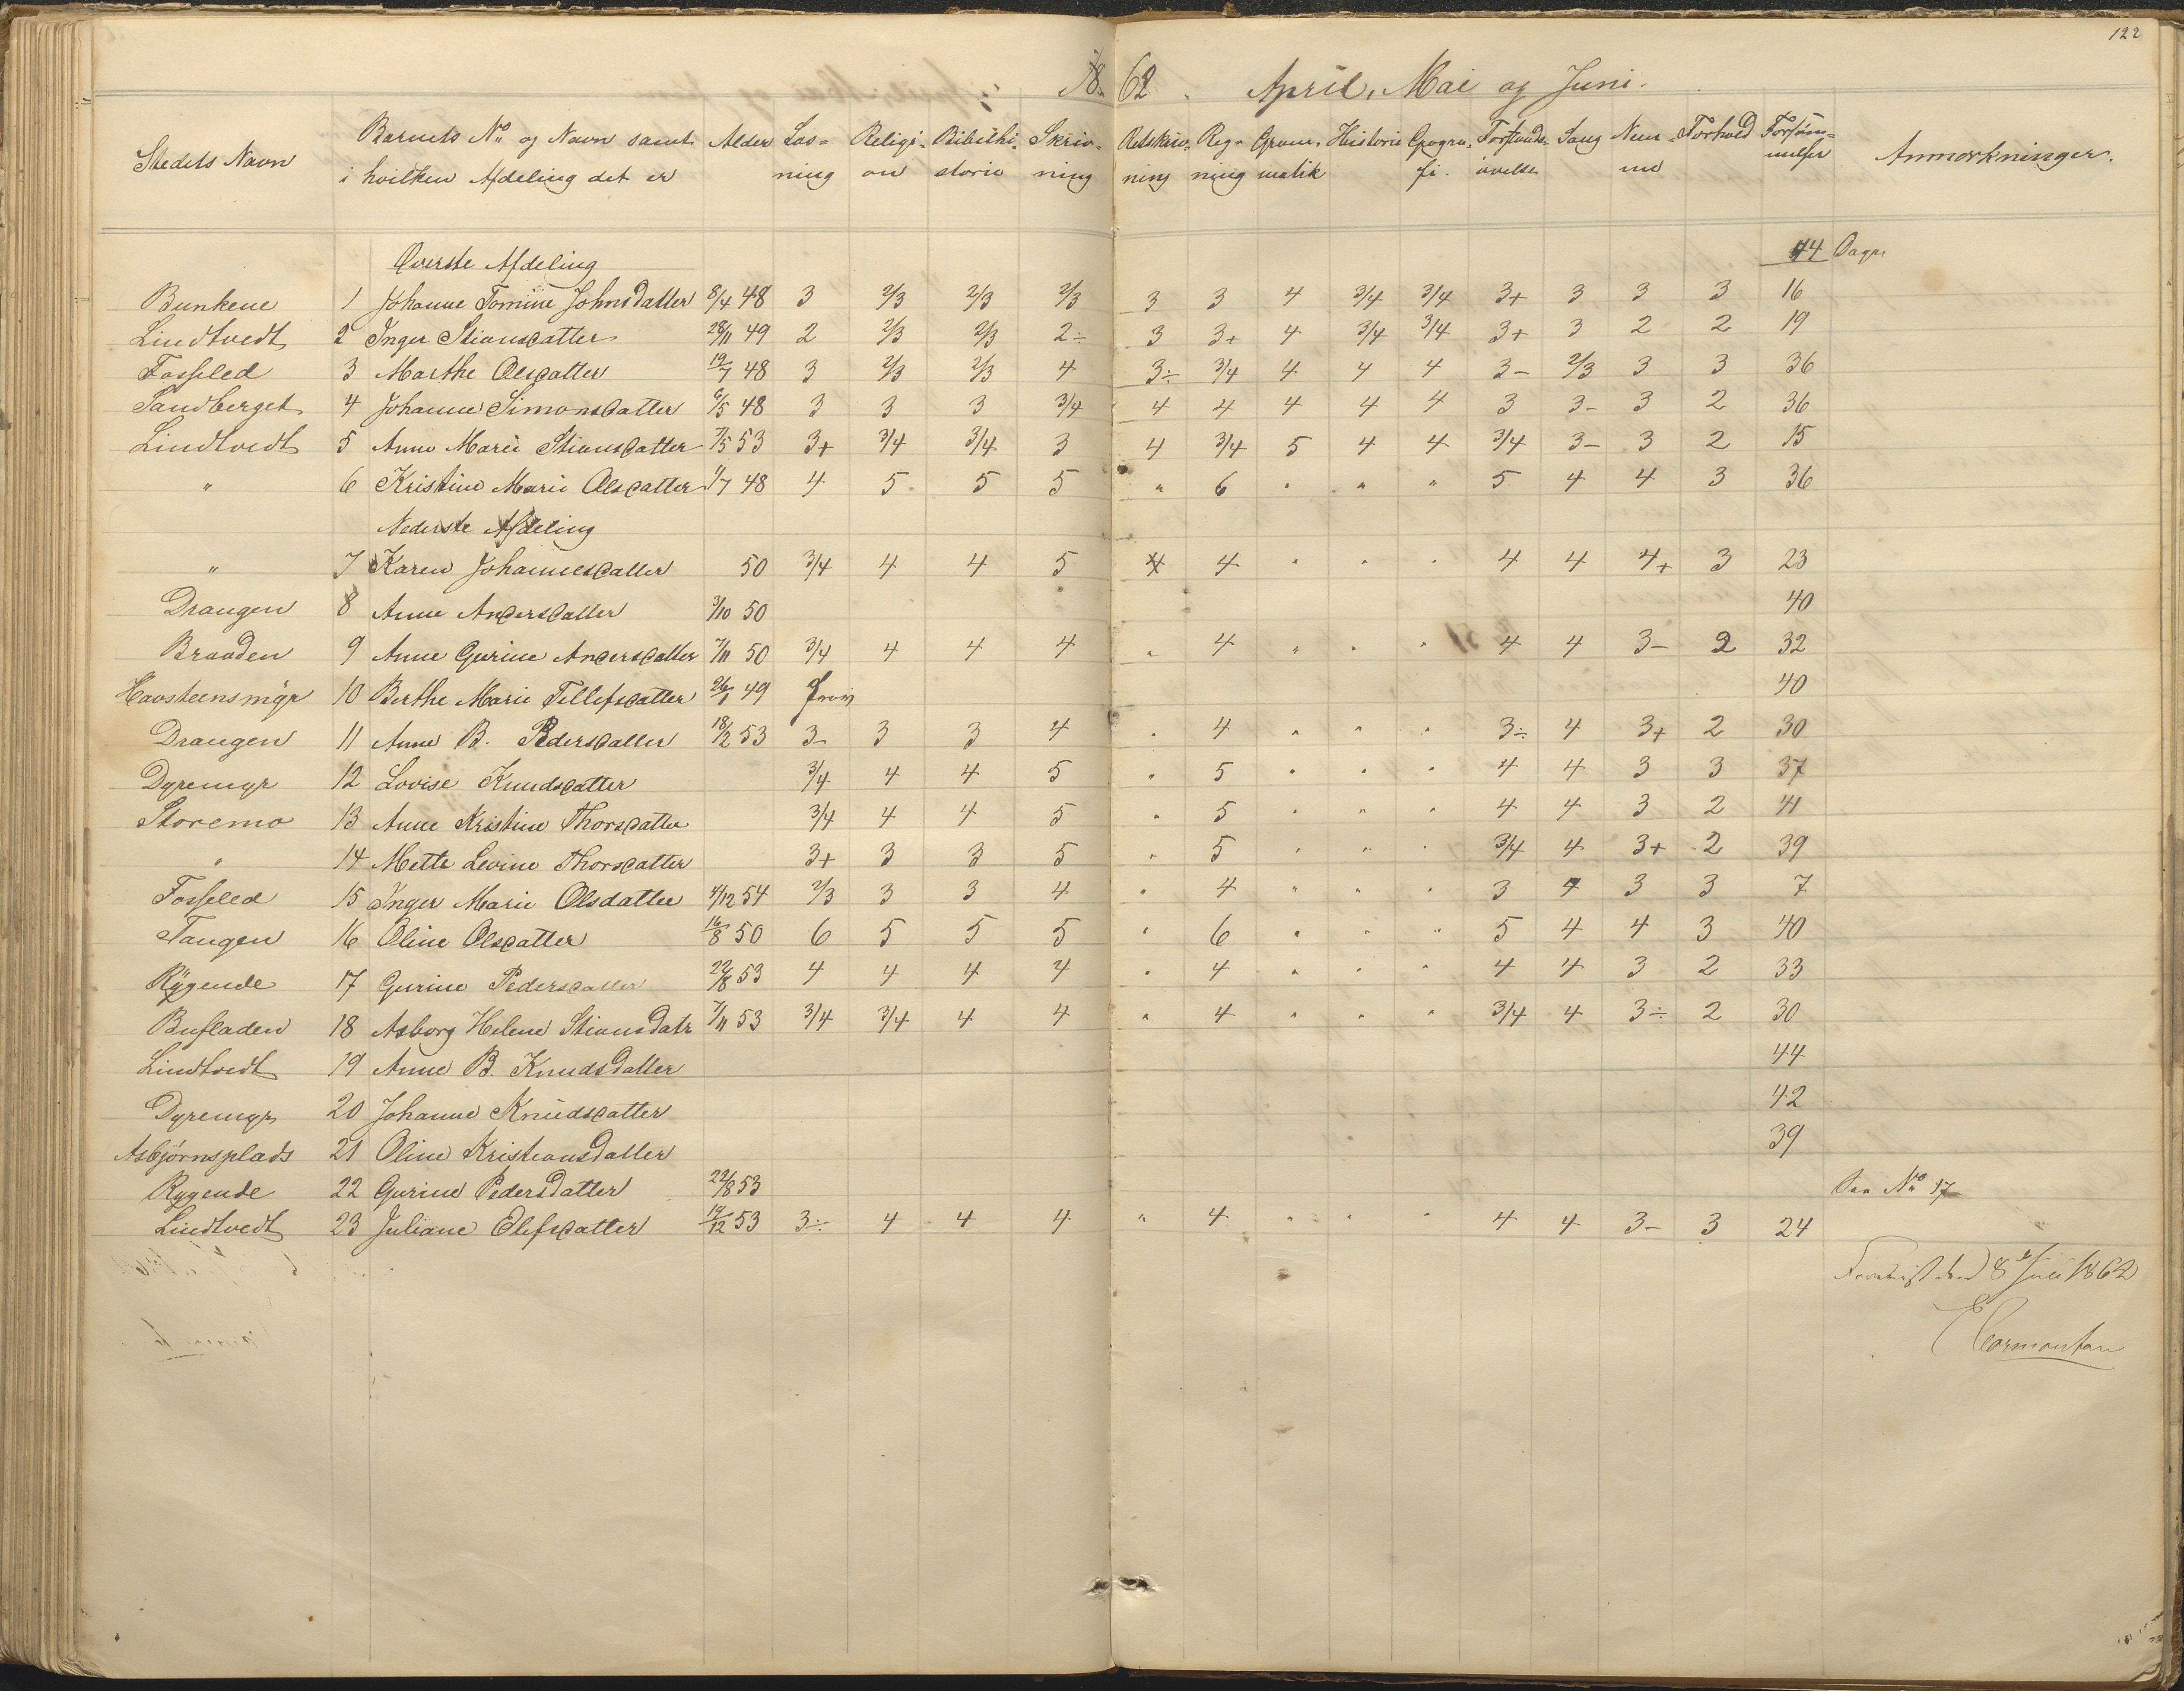 122
1862. April, Mai og Juni.
Stedets Navn Barnets No og Navn samt i hvilken Afdeling det er Alder Læs=ning Religi-on Bibelhi-storie Skriv-ning Retskriv-ning Reg-ning Gram-matik Historie Geogra-fi. Forstands-øvelse Sang Nem-me Forhold Forsøm=melser Anmærkninger.
Øverste Afdeling 44 Dage
Bunkene 1 Johanne Tomine Johnsdatter 8/4 48 3 2/3 2/3 2/3 3 3 4 3/4 3/4 3+ 3 3 3 16
Lindtvedt 2 Inger Stiansdatter 28/11 49 2 2/3 2/3 2÷ 3 3+ 4 3/4 3/4 3+ 3 2 2 19
Fosseled 3 Marthe Olesdatter 19/7 48 3 2/3 2/3 4 3÷ 3/4 4 4 4 3- 2/3 3 3 36
Sandberget 4 Johanne Simonsdatter 6/5 48 3 3 3 3/4 4 4 4 4 4 3 3- 3 2 36
Lindtvedt 5 Anne Marie Stiansdatter 7/5 53 3+ 3/4 3/4 3 4 3/4 5 4 4 3/4 3- 3 2 15
" 6 Kristine Marie Olsdatter 1/7 48 4 5 5 5 " 6 " " " 5 4 4 3 36
Nederste Afdeling
" 7 Karen Johannesdatter 50 3/4 4 4 5 4 4 " " " 4 4 4+ 3 23
Drangen 8 Anne Andersdatter 3/10 50 40
Braaden 9 Anne Gurine Andersdatter 7/11 50 3/4 4 4 4 " 4 " " " 4 4 3- 2 32
Havsteensmÿr 10 Berthe Marie Tellefsdatter 26/1 49 40
Drangen 11 Anne B. Pedersdatter 18/2 53 3- 3 3 4 " 4 " " " 3÷ 4 3+ 2 30
Dyremyr 12 Lovise Knudsdatter 3/4 4 4 5 " 5 " " " 4 4 3 3 37
Storemo 13 Anne Kristine Thorsdatter 3/4 4 4 5 " 5 " " " 4 4 3 2 41
" 14 Mette Levine Thorsdatter 3+ 3 3 5 " 5 " " " 3/4 4 3+ 2 39
Fosseled 15 Inger Marie Olsdatter 4/12 54 2/3 3 3 4 " 4 " " " 3 4 3 3 7
Tangen 16 Oline Olsdatter 16/8 50 6 5 5 5 " 6 " " " 5 4 4 3 40
Rÿgende 17 Gurine Pedersdatter 22/8 53 4 4 4 4 " 4 " " " 4 4 3 2 33
Bufladen 18 Asborg Helene Stiansdatr 7/11 53 3/4 3/4 4 4 " 4 " " " 3/4 4 3÷ 2 30
Lindtvedt 19 Anne B. Knudsdatter 44
Dyremyr 20 Johanne Knudsdatter 42
Asbjørnsplads 21 Oline Kristiansdatter 39
Rygende 22 Gurine Pedersdatter 22/8 53 See No 17
Lindtvedt 23 Juliane Olefsdatter 19/12 53 3÷ 4 4 4 " 4 " " " 4 4 3- 3 24
Forevist den 8de Juli 1862